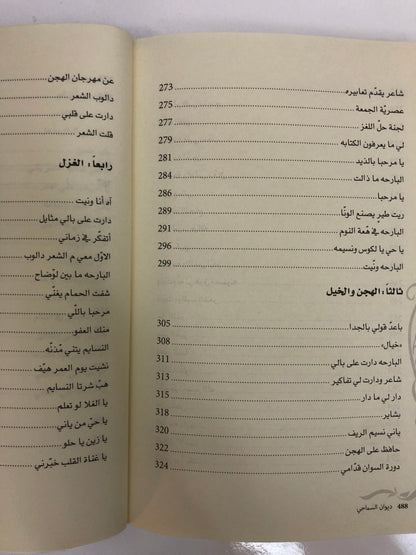 شاعر يقدّم تعابيره 273
عصريّة الجمعة 275
لجنة حلّ اللغز 277
لي ما يعرفون الكتابه 279
يا مرحبا بالذيد 281
البارحه ما ذالت 284
يا مرحبا 286
ريت طيرٍ يصنع الونّا 289
البارحه في هٓعة النوم 291
يا حي يا لكوس ونسيمه 296
البارحه ونّيت 299
ثالثاً: الهجن والخيل
باعدْ قولي بالجدا 305
«خيال» 308
البارحه دارت على بالي 311
شاعر ودارت لي تفاكير 313
دار لي ما دار 315
بشاير 318
ياني نسيم الريف 320
حافظ على الهجن 322
دورة السوان قدّامي 324
488 ديوان السماحي
عن مهرجان الهجن
دالوب الشعر
دارت على قلبي
قلت الشعر
رابعاً: الغزل
آه أنا ونيت
دارت على بالي مثايل
أتفكّر في زماني
الاوّل معي م الشعر دالوب
البارحه ما بين لوْضاح
شفت الحمام يغنّي
مرحبا باللّي
منك العفو
النسايم يتني مْدنّه
نشيت يوم العمر هيّف
هبّ شرتا النسايم
يا الغلا لو تعلم
يا حيّ من ياني
يا زين يا حلو
يا غناة القلب خبّرني